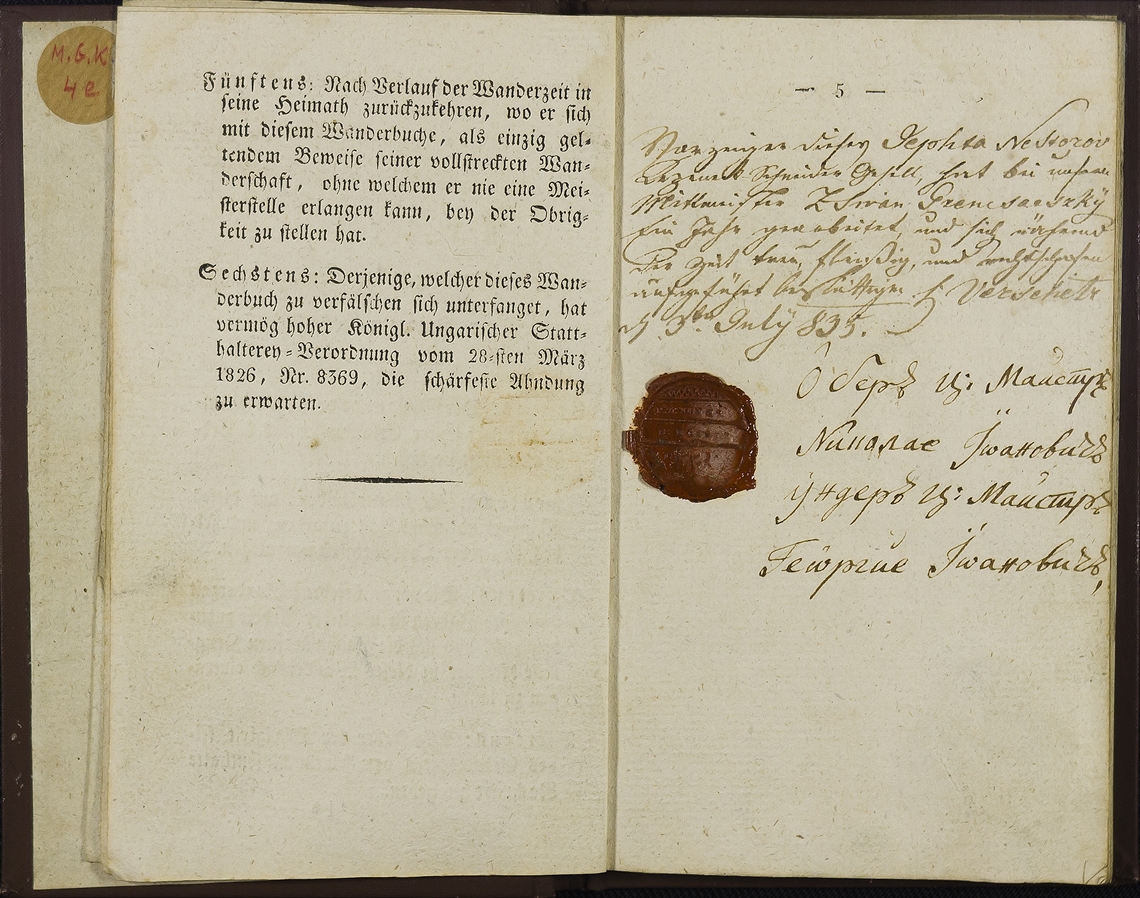 M.G.K
4e
Fünftens: Nach Verlauf der Wanderzeit in
seine Heimath zurückzukehren, wo er sich
mit diesem Wanderbuche, als einzig gel-
tendem Beweise seiner vollstreckten Wan-
derschaft, ohne welchem er nie eine Mei-
sterstelle erlangen kann, bey der Obrig-
keit zu stellen hat.
Sechstens: Derjenige, welcher dieses Wan-
derbuch zu verfälschen sich unterfanget, hat
vermög hoher Königl. Ungarischer Statt-
halterey-Verordnung vom 28-sten März
1826, Nr. 8369, die schärfeste Ahndung
zu erwarten.
— 5 —
Vorzeiger dieses Jephta Nestorov
Schneider Gesell, hat bei unserm
Mittmeister Z
Ein Jahr gearbeitet, und sich während
der Zeit treu, fleißig, und rechtschafen
aufgeführt bestättigen Verschetz
3ten July 835.
Оберъ Ц: Маистръ
Николае Їwановичъ
Ундеръ Ц: Маистръ
Геѡргие Їwановичъ,